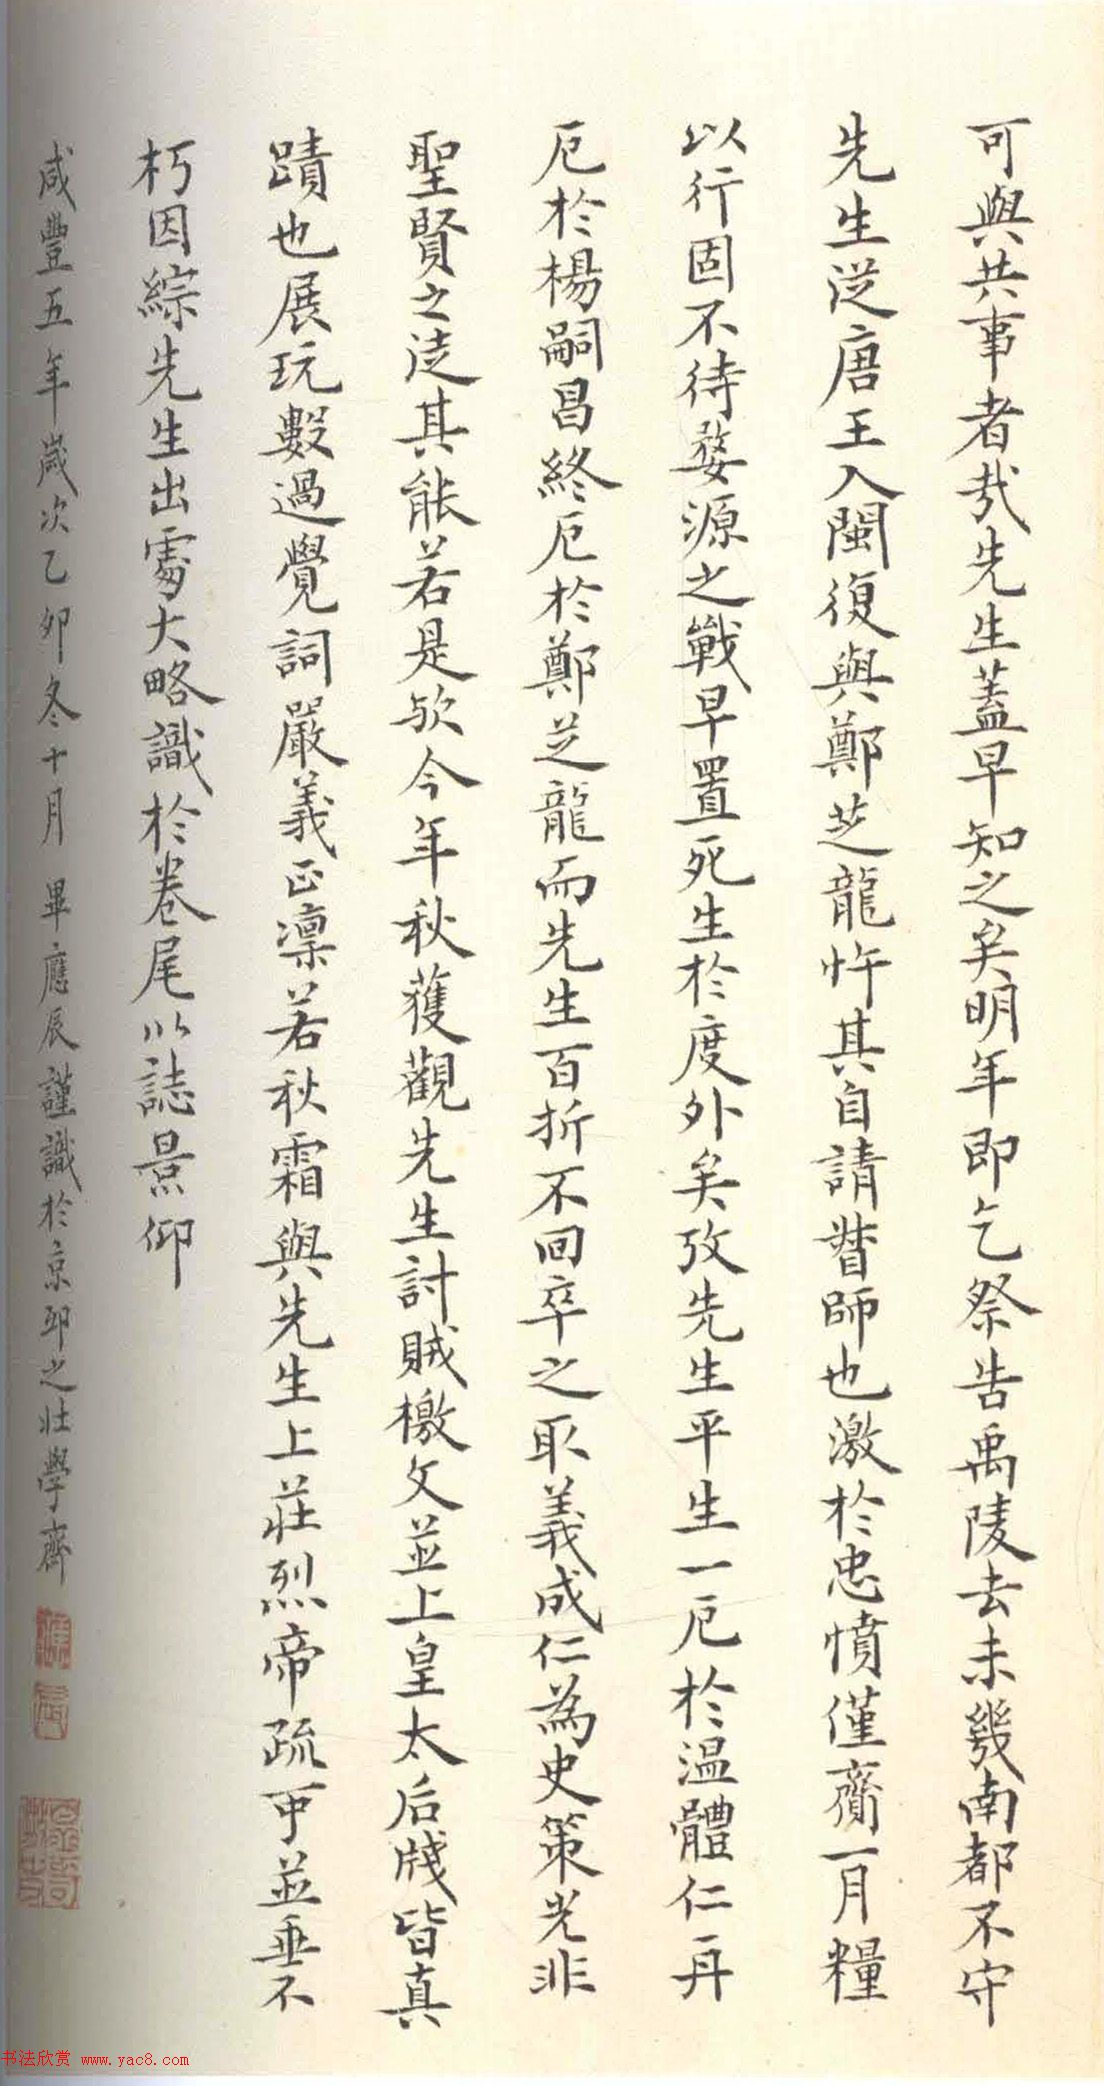 可與共事者哉先生蓋早知之矣明年即乞祭告禹陵去未幾南都不守
先生從唐王入閩復與鄭芝龍忤其自請督師也激於忠憤僅齎一月糧
以行固不待婺源之戰早置死生於度外矣攷先生平生一厄於温體仁再
厄於楊嗣昌終厄於鄭芝龍而先生百折不回卒之取義成仁為史策光非
聖賢之徒其能若是歟今年秋獲觀先生討賊檄文並上皇太后牋皆真
蹟也展玩數過覺詞嚴義正凛若秋霜與先生上莊烈帝疏可並垂不
朽因綜先生出處大略識於卷尾以誌景仰
咸豐五年歲次乙卯冬十月 畢應辰謹識於京邸之壯學齋
书法欣赏 www.yac8.com